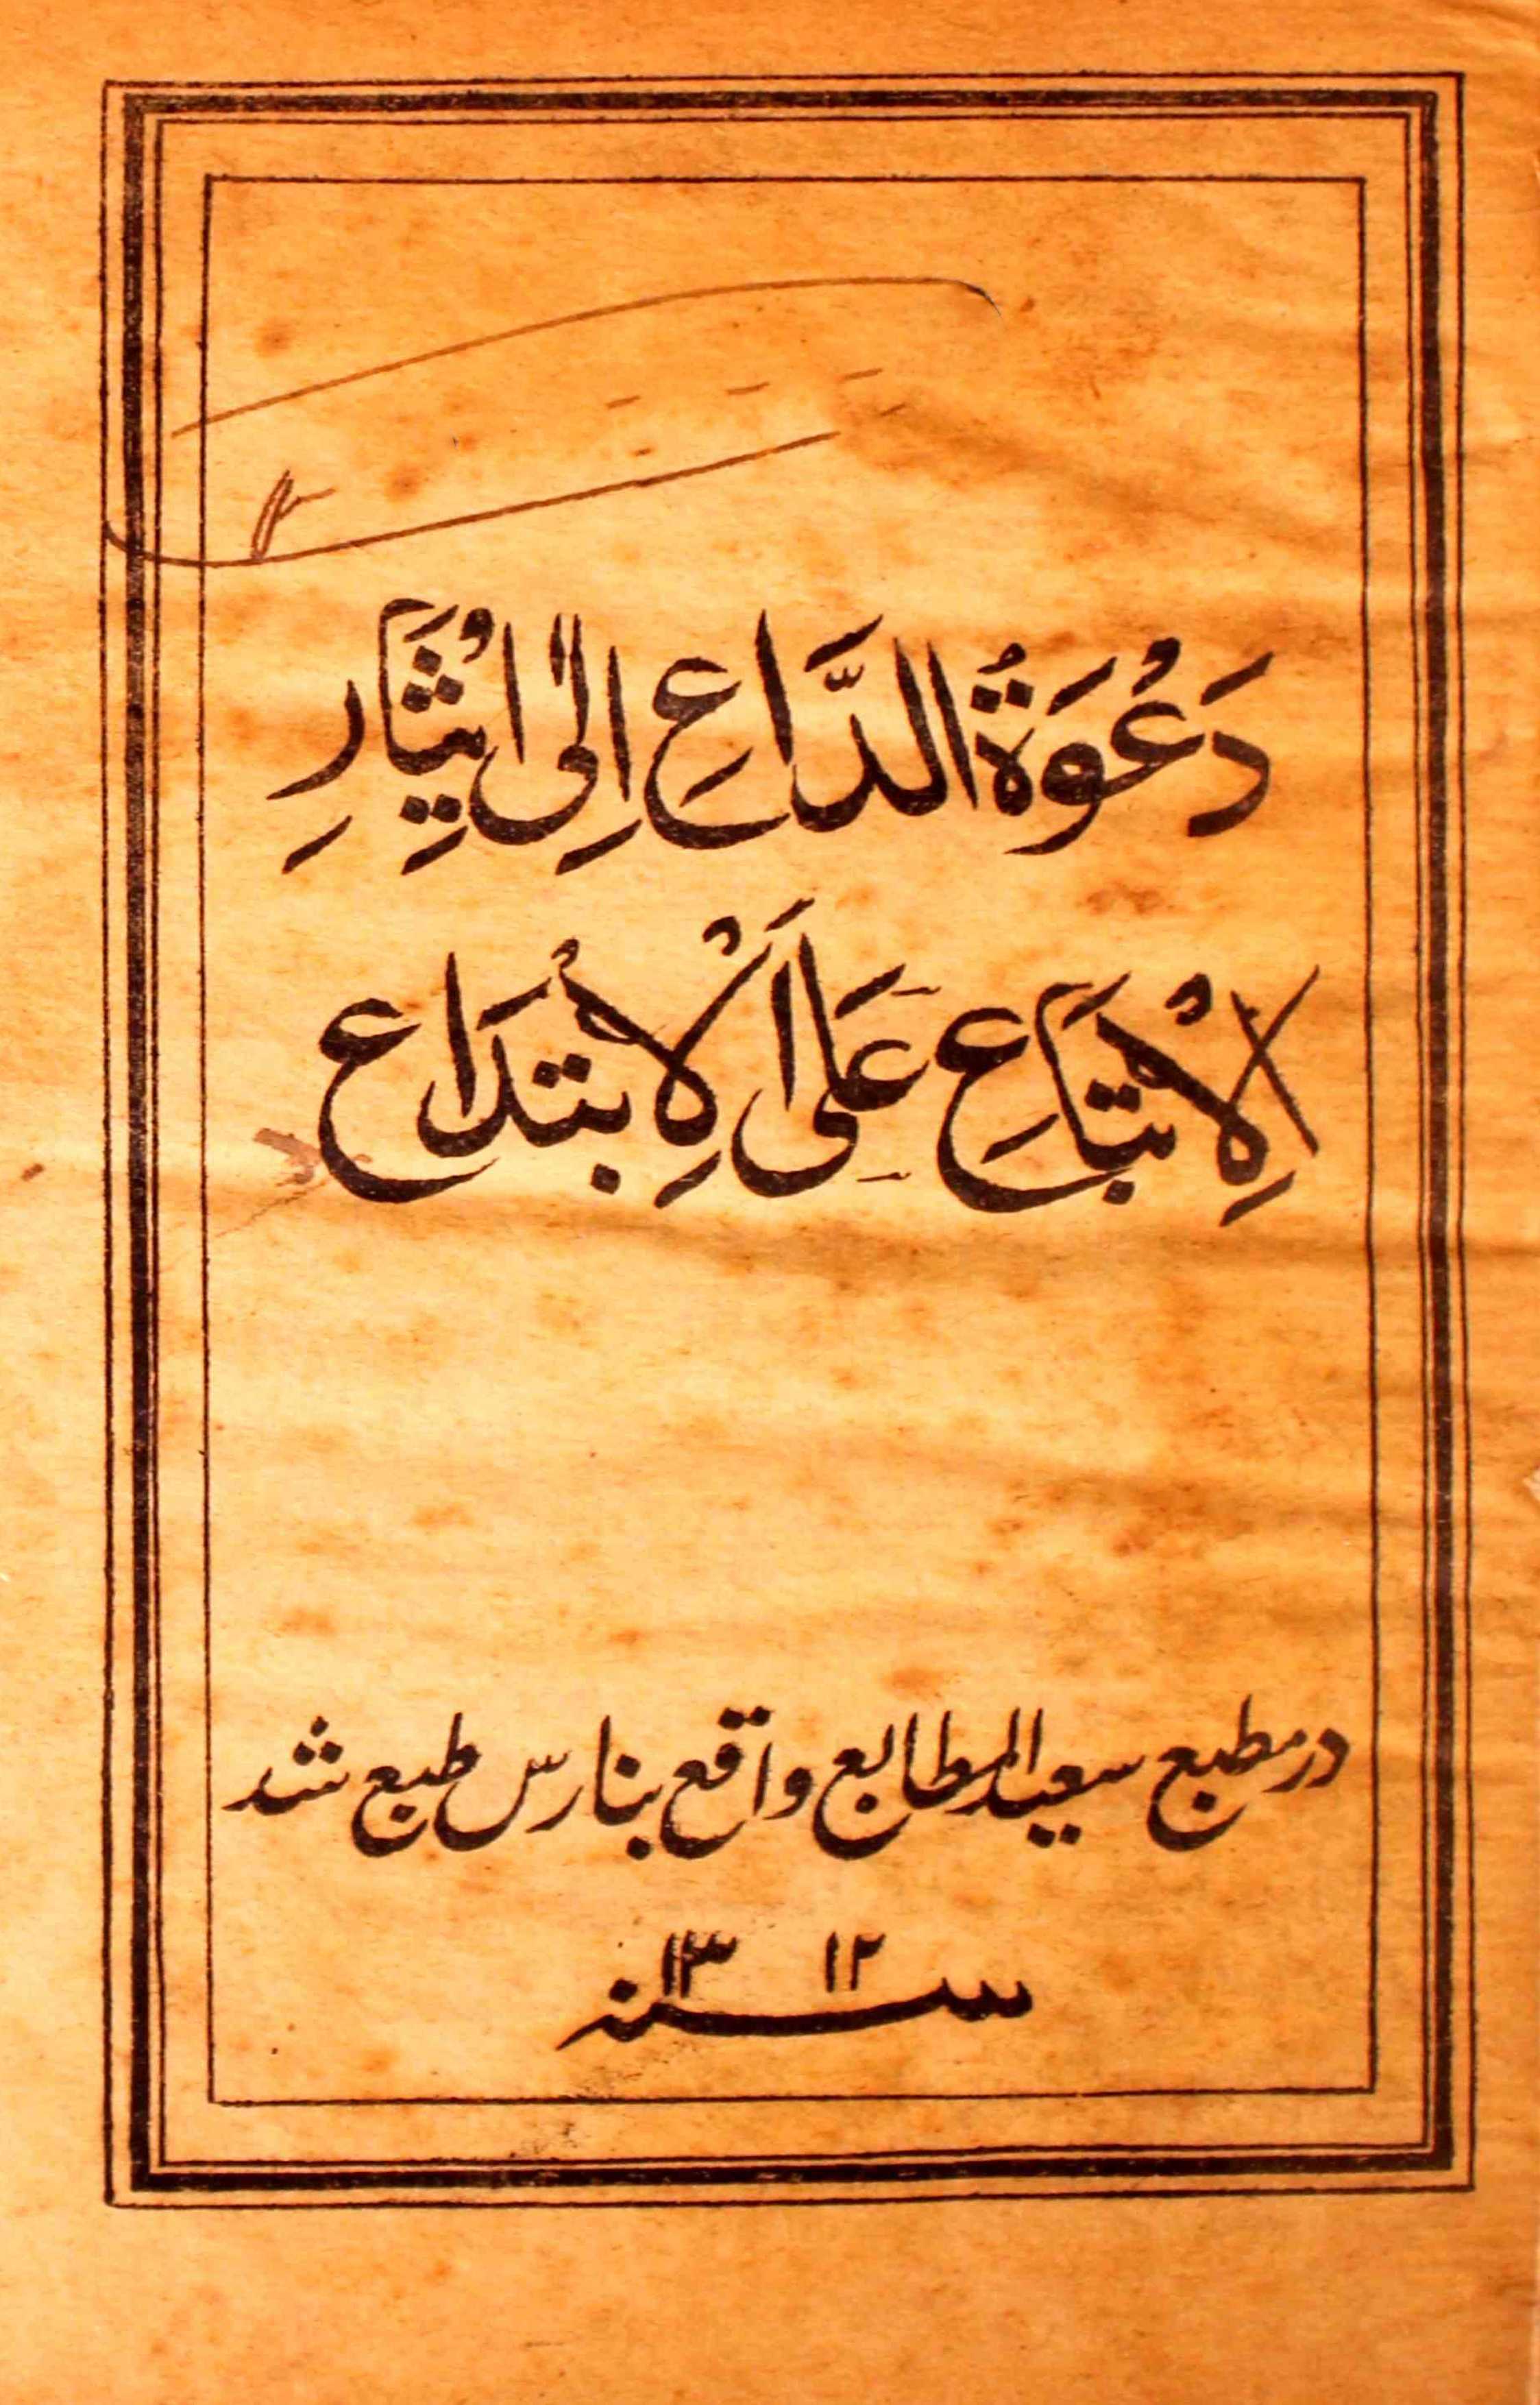 دَعْوَةُ الدَّاعِ اِلٰى اِيْثَارِ
الْاِتِّبَاعِ عَلَى الْاِبْتِدَاعِ
در مطبع سعید المطابع واقع بنارس طبع شد
سنہ ۱۳۱۲